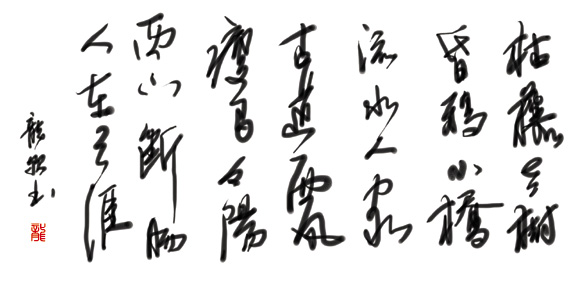 枯藤老樹
昏鴉小橋
流水人家
古道西風
瘦馬夕陽
西下斷腸
人在天涯
龍书
龍